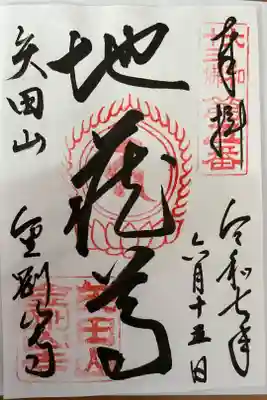 奉拝
令和七年
六月十五日
地蔵尊
矢田山
金剛山寺